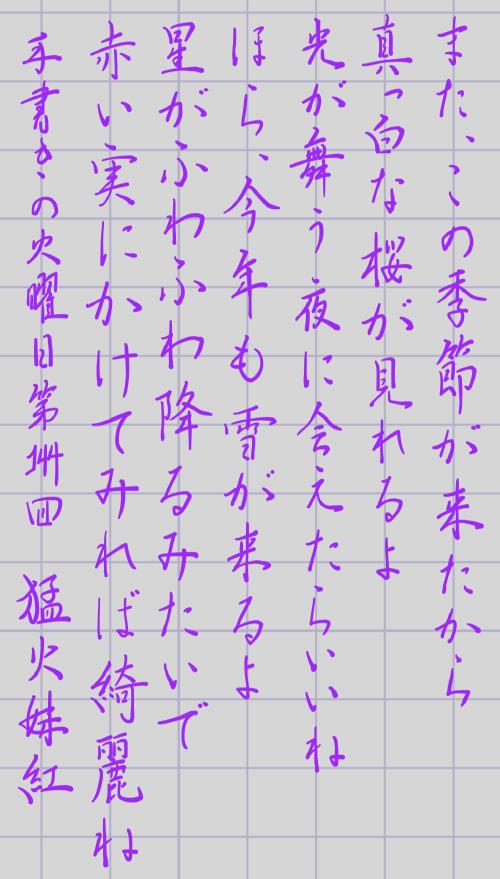 また、この季節が来たから
真っ白な桜が見れるよ
光が舞う夜に会えたらいいね
ほら、今年も雪が来るよ
星がふわふわ降るみたいで
赤い実にかけてみれば綺麗ね
手書きの火曜日第卌回 猛火妹紅